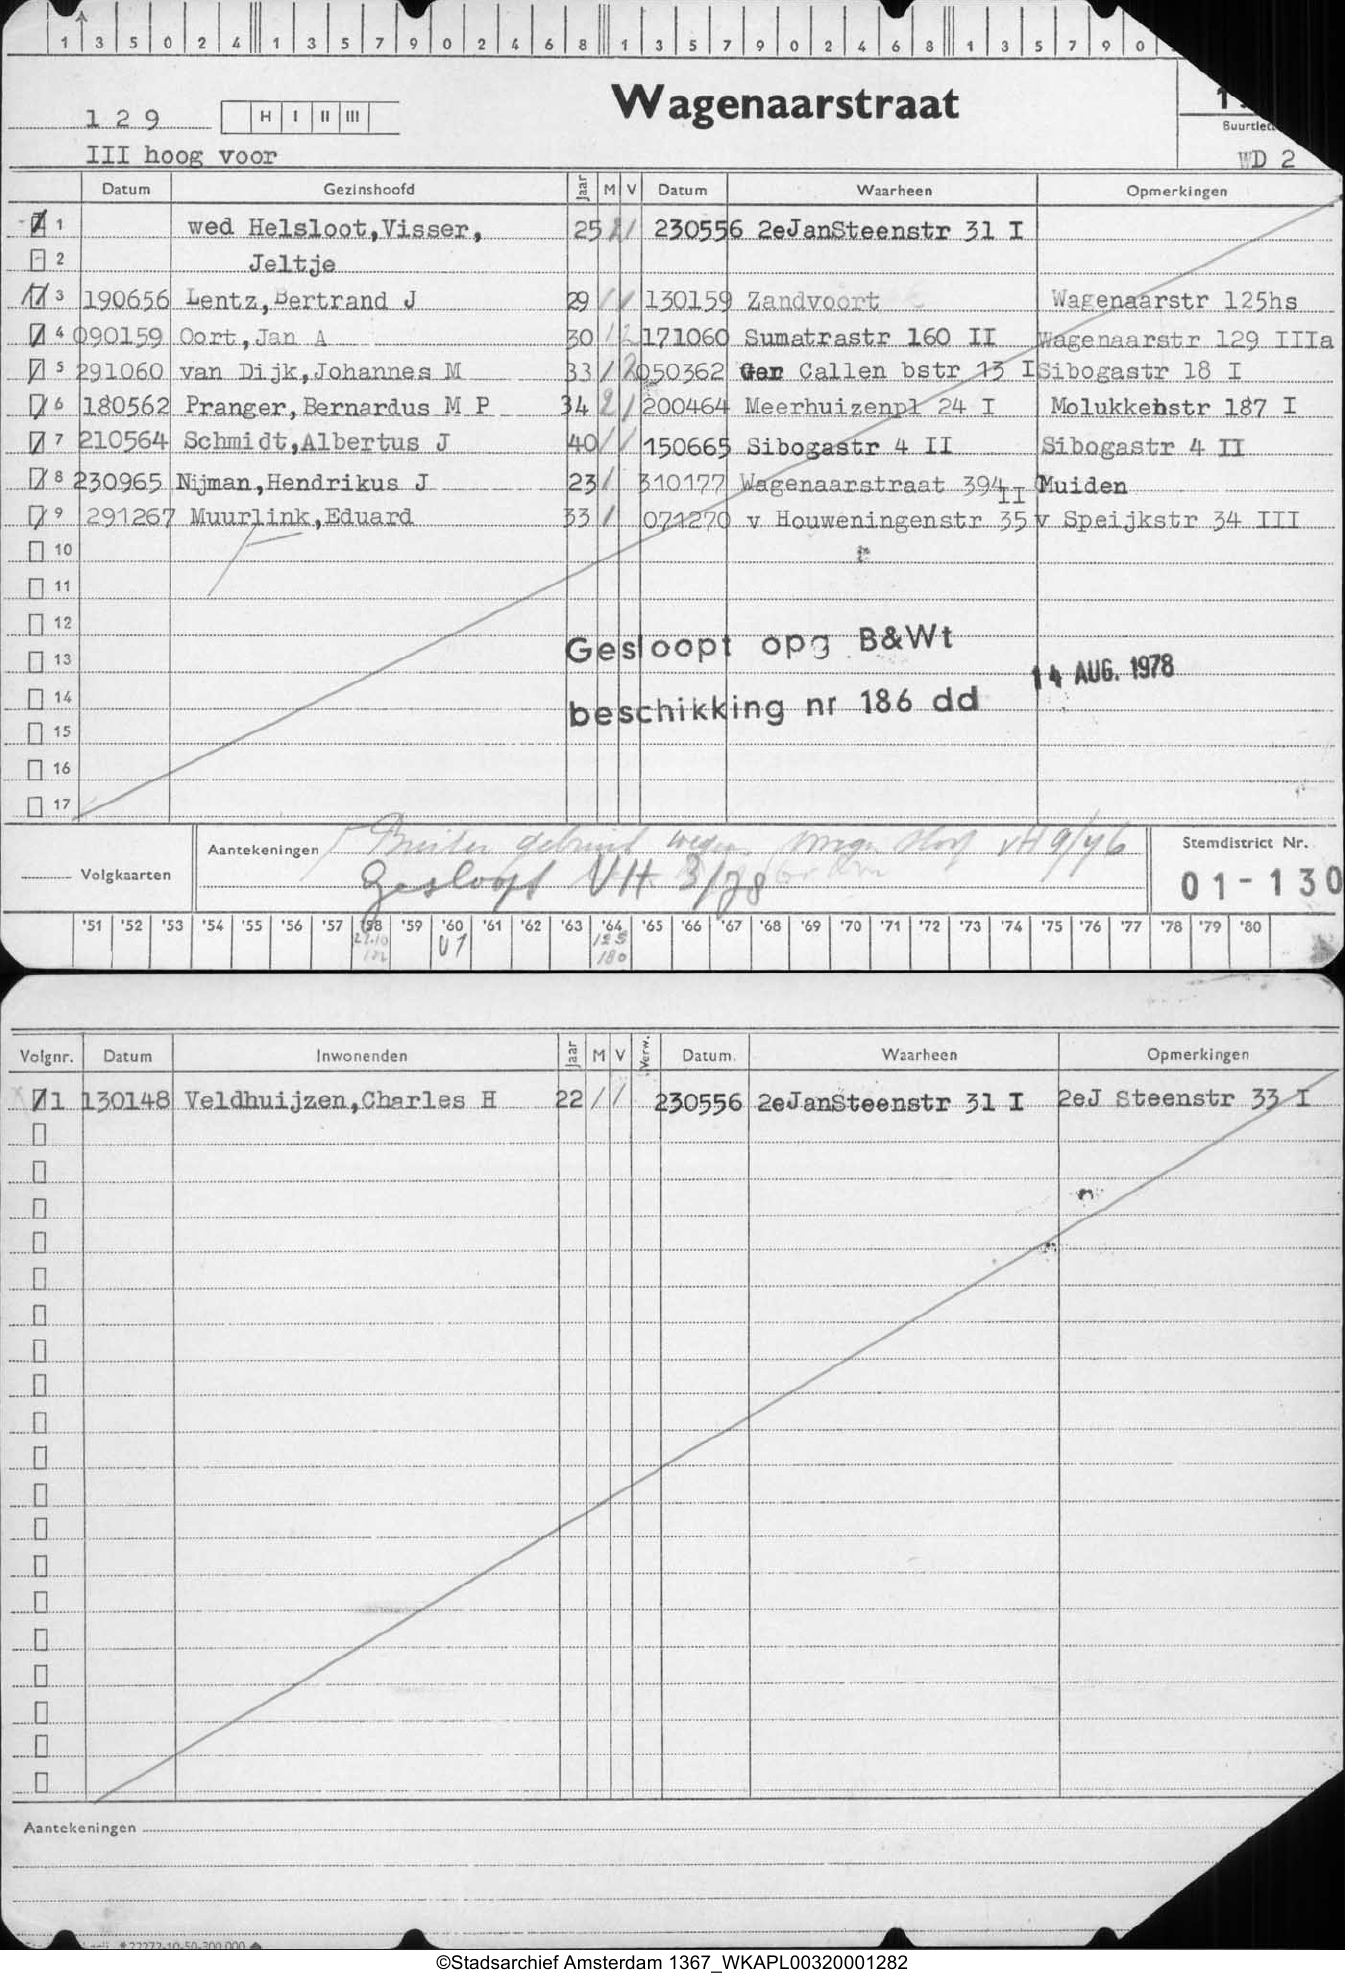 1 3 5 0 2 4 1 3 5 7 9 0 2 4 6 8 1 3 5 7 9 0 2 4 6 8 1 3 5 7 9 0
Wagenaarstraat
129 H I II III
Buurtlet
III hoog voor WD 2
Datum Gezinshoofd Jaar M V Datum Waarheen Opmerkingen
1 wed Helsloot,Visser, 25 230556 2eJanSteenstr 31 I
2 Jeltje
3 190656 Lentz,Bertrand J 29 130159 Zandvoort Wagenaarstr 125hs
4 090159 Oort,Jan A 30 171060 Sumatrastr 160 II Wagenaarstr 129 IIIa
5 291060 van Dijk,Johannes M 33 050362 Callen bstr 13 I Sibogastr 18 I
6 180562 Pranger,Bernardus M P 34 2 1 200464 Meerhuizenpl 24 I Molukkenstr 187 I
7 210564 Schmidt,Albertus J 40 1 1 150665 Sibogastr 4 II Sibogastr 4 II
8 230965 Nijman,Hendrikus J 23 1 310177 Wagenaarstraat 394 II Muiden
9 291267 Muurlink,Eduard 33 1 071270 v Houweningenstr 35 v Speijkstr 34 III
10
11
12
Gesloopt opg B&Wt
13
14 AUG. 1978
14
beschikking nr 186 dd
15
16
17
Aantekeningen Buiten gebruik wegens
Stemdistrict Nr.
Volgkaarten
Gesloopt VH 3/78
01-130
'51 '52 '53 '54 '55 '56 '57 '58 '59 '60 '61 '62 '63 '64 '65 '66 '67 '68 '69 '70 '71 '72 '73 '74 '75 '76 '77 '78 '79 '80
Volgnr. Datum Inwonenden Jaar M V Verw. Datum Waarheen Opmerkingen
1 130148 Veldhuijzen,Charles H 22 1 1 230556 2eJanSteenstr 31 I 2eJ Steenstr 33 I
Aantekeningen
©Stadsarchief Amsterdam 1367_WKAPL00320001282